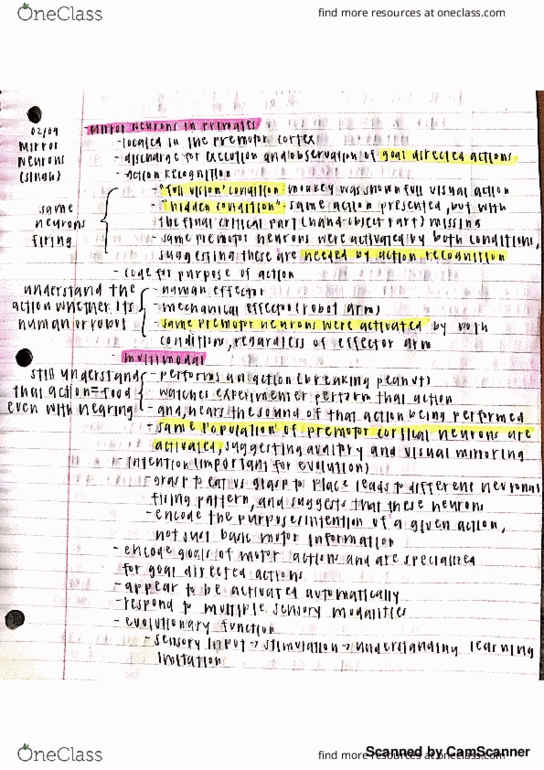 OneClass
find more resources at oneclass.com
02/09
Mirror
Neurons
(singh)
- Mirror neurons in primates
- located in the premotor cortex
- discharge for execution and observation of goal directed actions
- action recognition
same
neurons
firing
- "full vision" condition: monkey was shown full visual action
- "hidden condition": same action presented, but with
the final critical part (hand-object part) missing
- same premotor neurons were activated by both conditions,
suggesting these are needed by action recognition
- code for purpose of action
understand the
action whether its
human or robot
- human effector
- mechanical effector (robot arm)
- same premotor neurons were activated by both
conditions, regardless of effector arm
- multimodal
still understand
that action = food
even with hearing
- performs an action (breaking peanut)
- watches experimenter perform that action
- and, hears the sound of that action being performed
- same population of premotor cortical neurons are
activated, suggesting auditory and visual mirroring
- intention (important for evolution)
- grasp to eat vs grasp to place leads to different neuronal
firing pattern, and suggests that these neurons
- encode the purpose/intention of a given action,
not just basic motor information
- encode goals of motor actions and are specialized
for goal directed actions
- appear to be activated automatically
- respond to multiple sensory modalities
- evolutionary function
- sensory input → stimulation → understanding learning
imitation
OneClass
find more resources at oneclass.com
Scanned by CamScanner